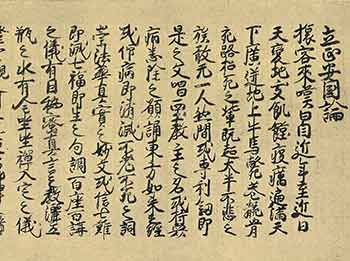 立正安国論
旅客来嘆曰自近年至近日
天変地夭飢饉疫癘遍満天
下広迸地上牛馬斃巷骸骨
充路招死之輩既超大半不悲之
族敢无一人然間或専利剣即
是之文唱西土教主之名或持衆
病悉除之願誦東方如来之経
或仰病即消滅不老不死之詞
崇法華真実之妙文或信七難
即滅七福即生之句調百座百講
之儀有因秘密真言之教灑五
瓶之水有全坐禅入定之儀